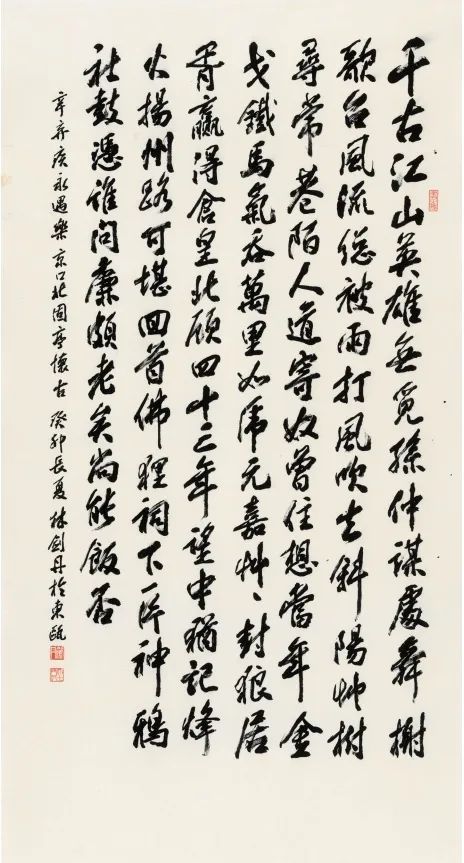 千古江山英雄無覓孫仲謀處舞榭
歌台風流總被雨打風吹去斜陽艸樹
尋常巷陌人道寄奴曾住想當年金
戈鐵馬氣吞萬里如虎元嘉艸艸封狼居
胥贏得倉皇北顧四十三年望中猶記烽
火揚州路可堪回首佛狸祠下一片神鴉
社鼓憑誰問廉頗老矣尚能飯否
辛弃疾永遇樂京口北固亭懷古 癸卯長夏林劍丹於東甌